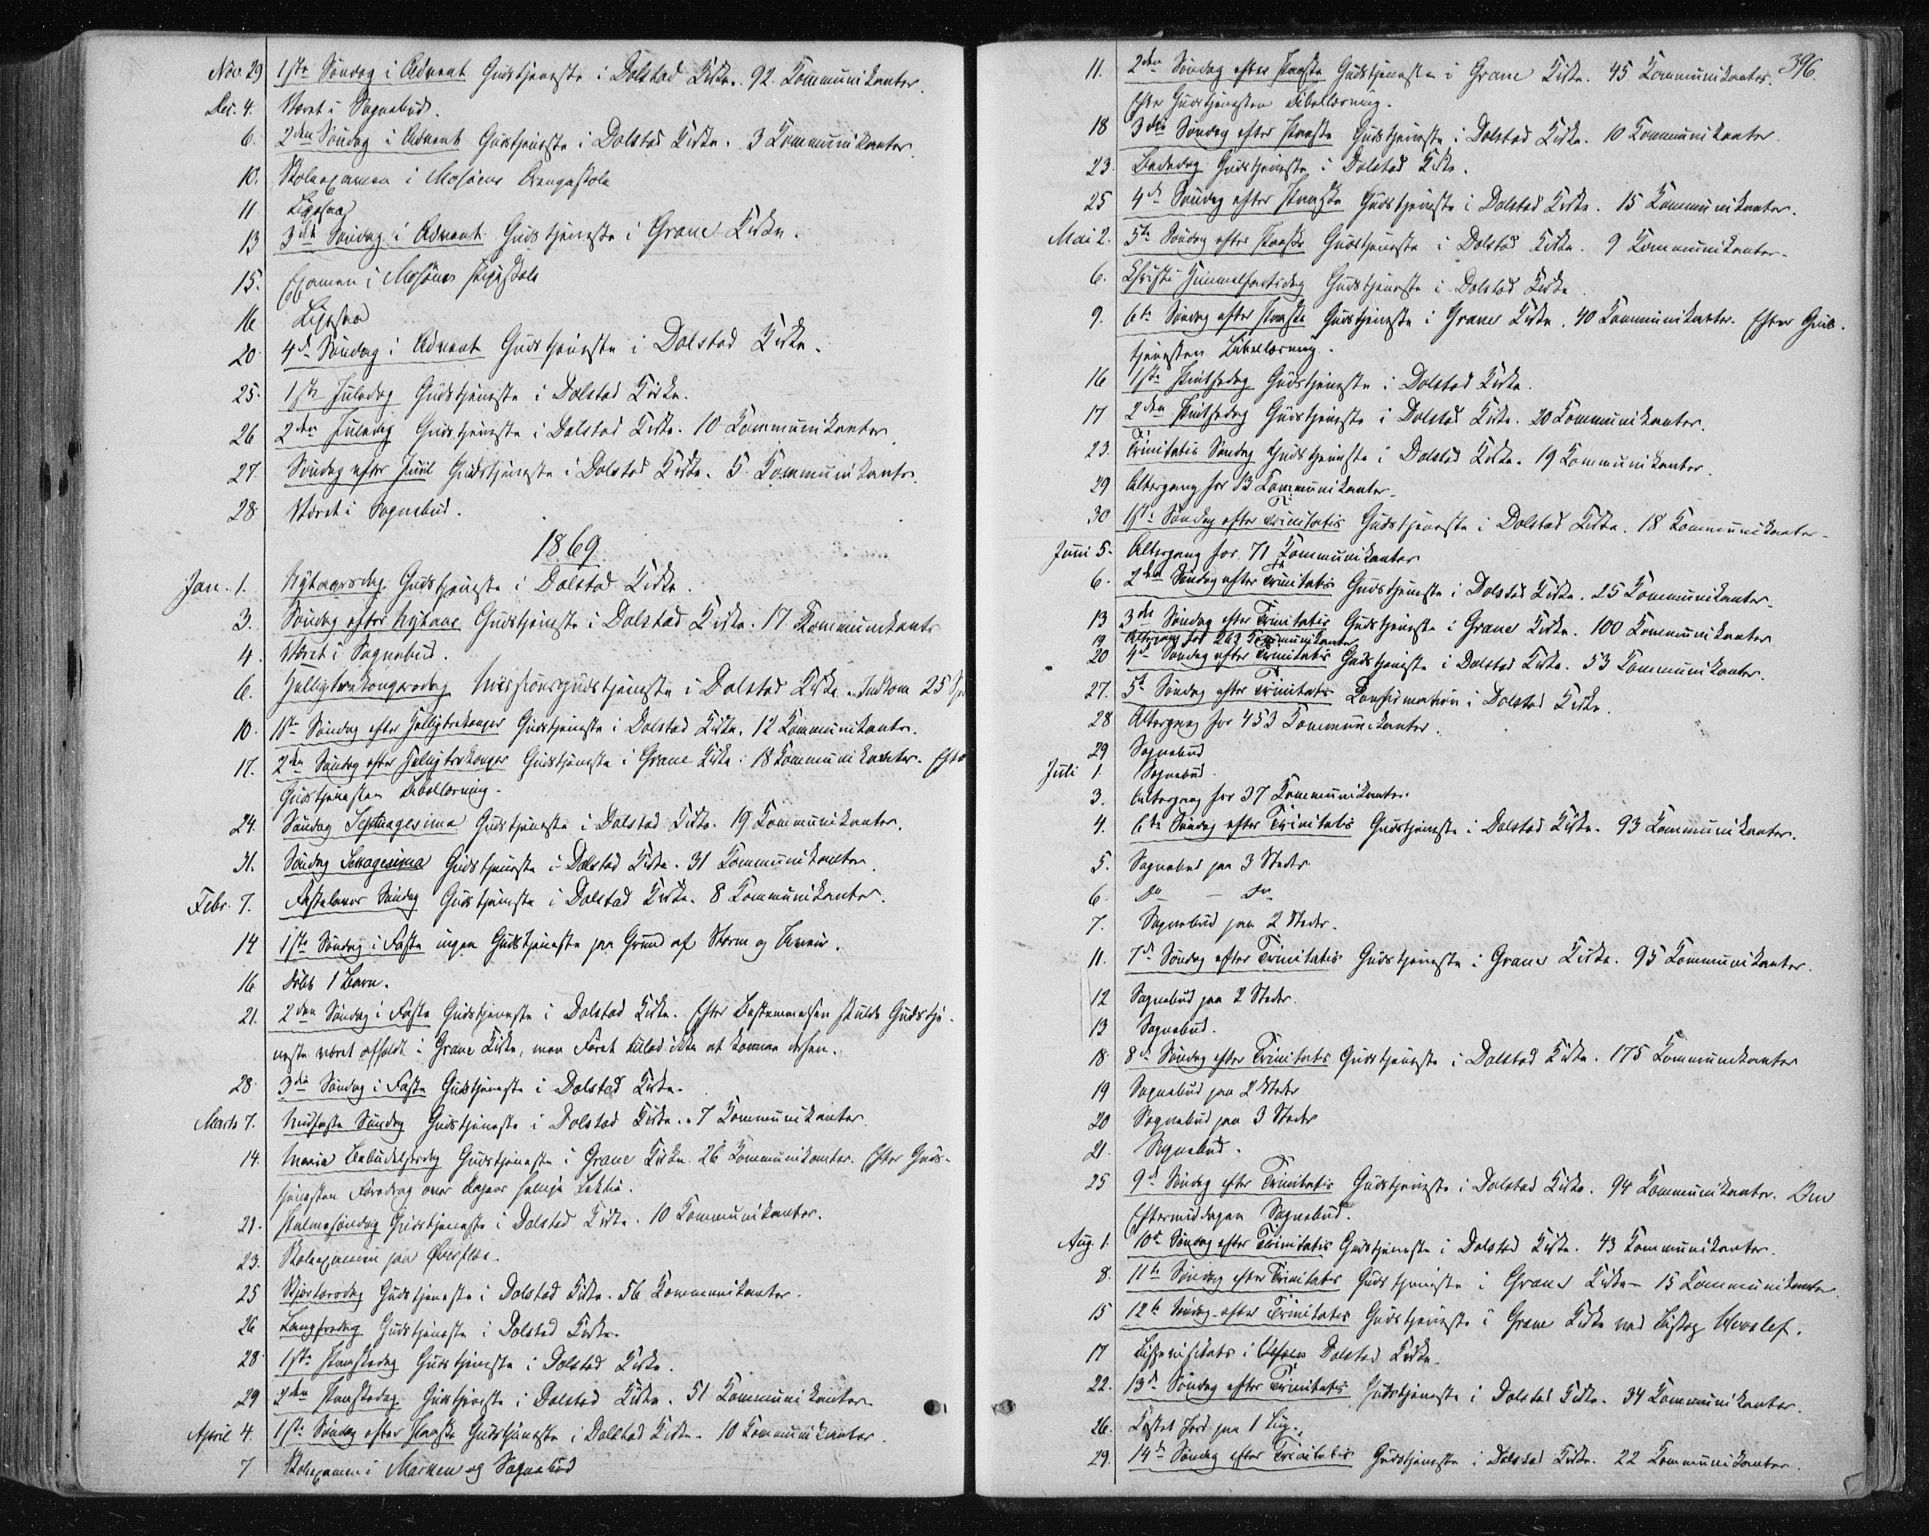 Nov. 29 1ste Søndag i Advent Gudstjeneste i Dolstad Kirke. 92 Kommunikanter.
Dec. 4. Været i Sognebud.
6. 2den Søndag i Advent Gudstjeneste i Dolstad Kirke. 3 Kommunikanter.
10. Skoleexamen i Mosjøens Drengeskole
11 Ligesaa
13 3die Søndag i Advent Gudstjeneste i Grane Kirke.
15. Examen i Mosjøens Pigeskole
16 Ligesaa
20. 4de Søndag i Advent Gudstjeneste i Dolstad Kirke.
25. 1ste Juledag Gudstjeneste i Dolstad Kirke.
26 2den Juledag Gudstjeneste i Dolstad Kirke. 10 Kommunikanter.
27. Søndag efter Juul Gudstjeneste i Dolstad Kirke. 5 Kommunikantr.
28 Været i Sognebud.
1869.
Jan. 1. Nytaarsdag Gudstjeneste i Dolstad Kirke.
3. Søndag efter Nytaar Gudstjeneste i Dolstad Kirke. 17. Kommunikantr
4. Været i Sognebud.
6. Helligtrekongersdag Missionsgudstjeneste i Dolstad Kirke. Indkom 25 Spd
10. 1ste Søndag efter Helligtrekonger Gudstjeneste i Dolstad Kirke. 12 Kommunikanter.
17. 2den Søndag efter Helligtrekonger Gudstjeneste i Grane Kirke. 18 Kommunikanter. Efter
Gudstjenesten Bibellæsning.
24. Søndag Septuagesima Gudstjeneste i Dolstad Kirke. 19 Kommunikanter.
31. Søndag Sexagesima Gudstjeneste i Dolstad Kirke. 31 Kommunikanter.
Febr. 7. Fastelavns Søndag Gudstjeneste i Dolstad Kirke. 8 Kommunikanter.
14 1ste Søndag i Faste ingen Gudstjeneste paa Grund af Storm og Uveir.
16 Døbt 1 Barn.
21. 2den Søndag i Faste Gudstjeneste i Dolstad Kirke. Efter Bestemmelsen skulde Gudstje-
neste været afholdt i Grane Kirke, men Føret tillod ikke at komme derhen.
28. 3die Søndag i Faste Gudstjeneste i Dolstad Kirke.
Marts 7. Midfaste Søndag Gudstjeneste i Dolstad Kirke. 7 Kommunikanter.
14. Maria Bebudelsesdag Gudstjeneste i Grane Kirke. 26 Kommunikanter. Efter Guds-
tjenesten Foredrag over Dagens hellige Lektie.
21. Palmesøndag Gudstjeneste i Dolstad Kirke. 10 Kommunikanter.
23. Skoleexamen paa
25 Skjærtorsdag Gudstjeneste i Dolstad Kirke. 56 Kommunikanter.
26 Langfredag Gudstjeneste i Dolstad Kirke.
28. 1ste Paaskedag Gudstjeneste i Dolstad Kirke.
29 2den Paaskedag Gudstjeneste i Dolstad Kirke. 51 Kommunikanter
April 4. 1ste Søndag efter Paaske Gudstjeneste i Dolstad Kirke. 10 Kommunikanter.
7 Skoleexamen i Marken og Sognebud
396.
11. 2den Søndag efter Paaske Gudstjeneste i Grane Kirke. 45 Kommunikanter.
Efter Gudstjenesten Bibellæsning.
18 3die Søndag efter Paaske Gudstjeneste i Dolstad Kirke. 10 Kommunikanter.
23. Bededag Gudstjeneste i Dolstad Kirke.
25 4de Søndag efter Paaske Gudstjeneste i Dolstad Kirke. 15 Kommunikanter.
Mai 2. 5te Søndag efter Paaske Gudstjeneste i Dolstad Kirke. 9 Kommunikanter.
6. Christi Himmelfartsdag Gudstjeneste i Dolstad Kirke.
9. 6te Søndag efter Paaske Gudstjeneste i Grane Kirke. 40 Kommunikanter. Efter Guds-
tjenesten Bibellæsning.
16 1ste Pintsedag Gudstjeneste i Dolstad Kirke.
17 2den Pintsedag Gudstjeneste i Dolstad Kirke. 20 Kommunikanter.
23. Trinitatis Søndag Gudstjeneste i Dolstad Kirke. 19 Kommunikanter.
29 Altergang for 13 Kommunikanter.
30 1ste Søndag efter Trinitatis Gudstjeneste i Dolstad Kirke. 18 Kommunikanter.
Juni 5. Altergang for 71 Kommunikanter
6. 2den Søndag efter Trinitatis Gudstjeneste i Dolstad Kirke. 25 Kommunikanter.
13 3die Søndag efter Trinitatis Gudstjeneste i Grane Kirke. 100 Kommunikanter
19 Altergang for 263 Kommunikanter
20 4de Søndag efter Trinitatis Gudstjeneste i Dolstad Kirke. 53 Kommunikanter.
27. 5te Søndag efter Trinitatis Konfirmation i Dolstad Kirke.
28 Altergang for 453 Kommunikanter.
29 Sognebud
Juli 1. Sognebud.
3. Altergang for 37 Kommunikanter.
4. 6te Søndag efter Trinitatis Gudstjeneste i Dolstad Kirke. 93 Kommunikanter.
5. Sognebud paa 3 Steder
6. Do — Do
7. Sognebud paa 2 Steder.
11. 7de Søndag efter Trinitatis Gudstjeneste i Grane Kirke. 95 Kommunikanter.
12 Sognebud paa 2 Steder.
13 Sognebud.
18. 8de Søndag efter Trinitatis Gudstjeneste i Dolstad Kirke. 175 Kommunikanter
19 Sognebud paa 2 Steder
20 Sognebud paa 3 Steder
21. Sognebud.
25 9de Søndag efter Trinitatis Gudstjeneste i Dolstad Kirke. 94 Kommunikanter. Om
Eftermiddagen Sognebud.
Aug. 1. 10de Søndag efter Trinitatis Gudstjeneste i Dolstad Kirke. 43 Kommunikanter.
8. 11te Søndag efter Trinitatis Gudstjeneste i Grane Kirke. 15 Kommunikanter.
15 12te Søndag efter Trinitatis Gudstjeneste i Grane Kirke ved Biskop
17 Bispevisitats i Dolstad Kirke.
22. 13de Søndag efter Trinitatis Gudstjeneste i Dolstad Kirke. 34 Kommunikanter.
26. Kastet Jord paa 1 Lig.
29. 14de Søndag efter Trinitatis Gudstjeneste i Dolstad Kirke. 22 Kommunikanter.